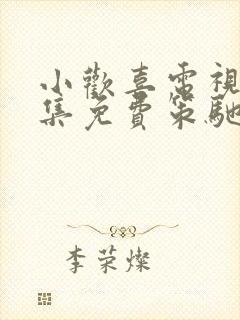 小歡喜電視
集免費策馳
李荣燦